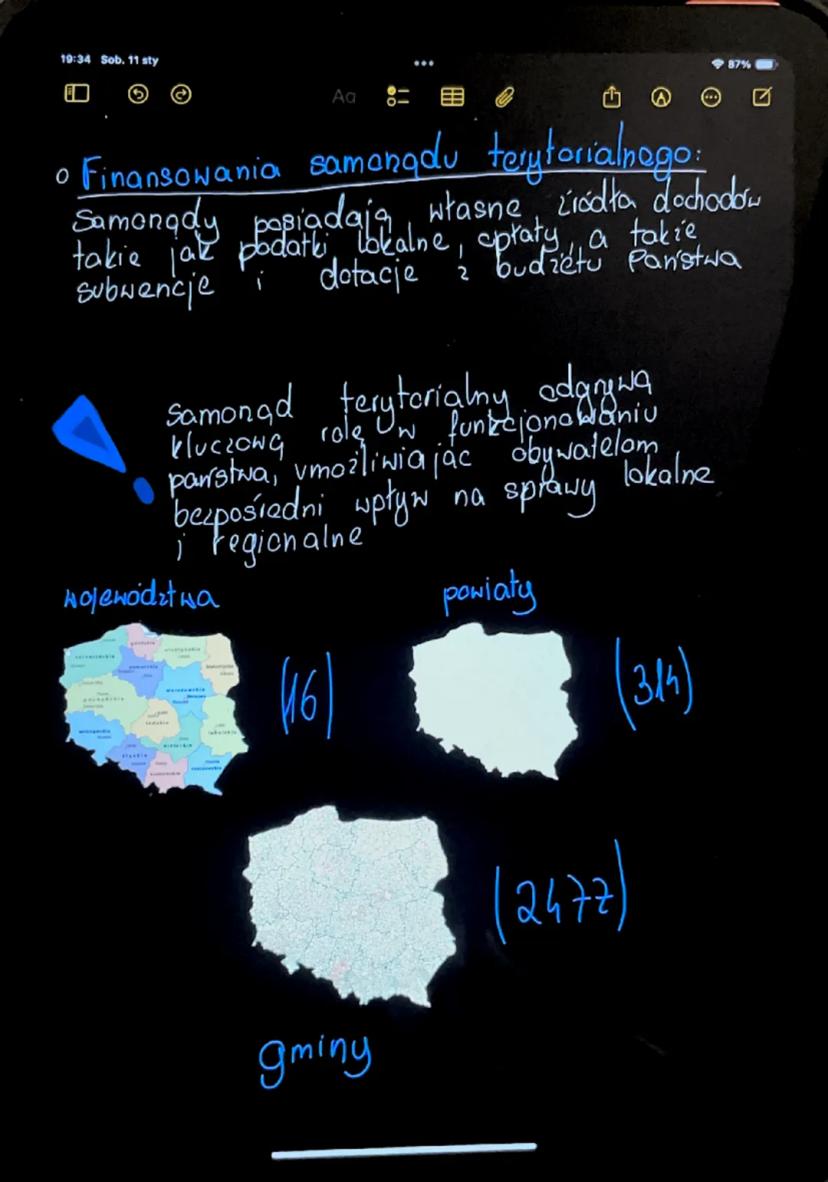 19:34 Sob. 11 sty
87%
Aa
o Finansowania samorządu terytorialnego:
Samorządy posiadają własne źródła dochodów
takie jak podatki lokalne, opłaty, a także
subwencje i dotacje z budżetu Państwa
samorząd terytorialny odgrywa
kluczową rolę w funkcjonowaniu
państwa, umożliwiając obywatelom
bezpośredni wpływ na sprawy lokalne
i regionalne
województwa
powiaty
(16)
(314)
(2477)
gminy